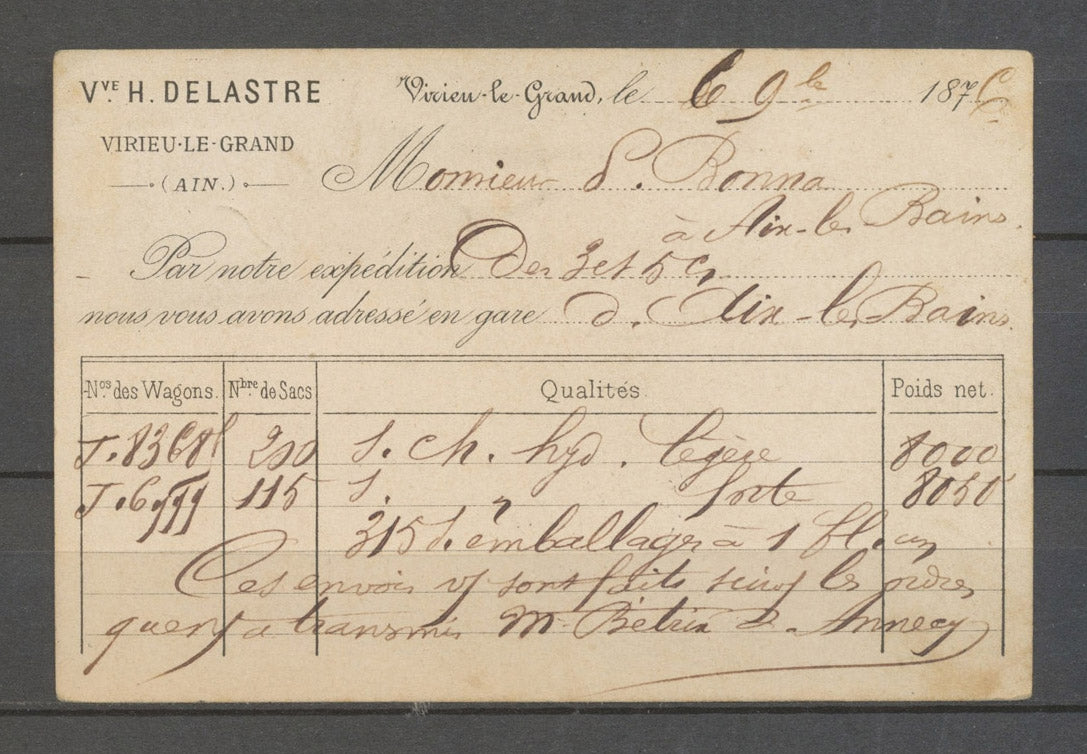 Vve H. DELASTRE
VIRIEU-LE-GRAND
(AIN.)
Virieu-le-Grand, le 6 9bre 1876
Monsieur P. Bonna
à Aix-les Bains.
Par notre expédition Des 3 et 5 Ct
nous vous avons adressé en gare d'Aix-les Bains.
Nos des Wagons. Nbre de Sacs Qualités Poids net.
200 S. ch. hyd. légère 8000
115 S. " forte 8050
315 S. emballages à 1 fl. un
Ces envois vs sont faits suivt les ordres
que vs a transmis Mr Bétrix d'Annecy